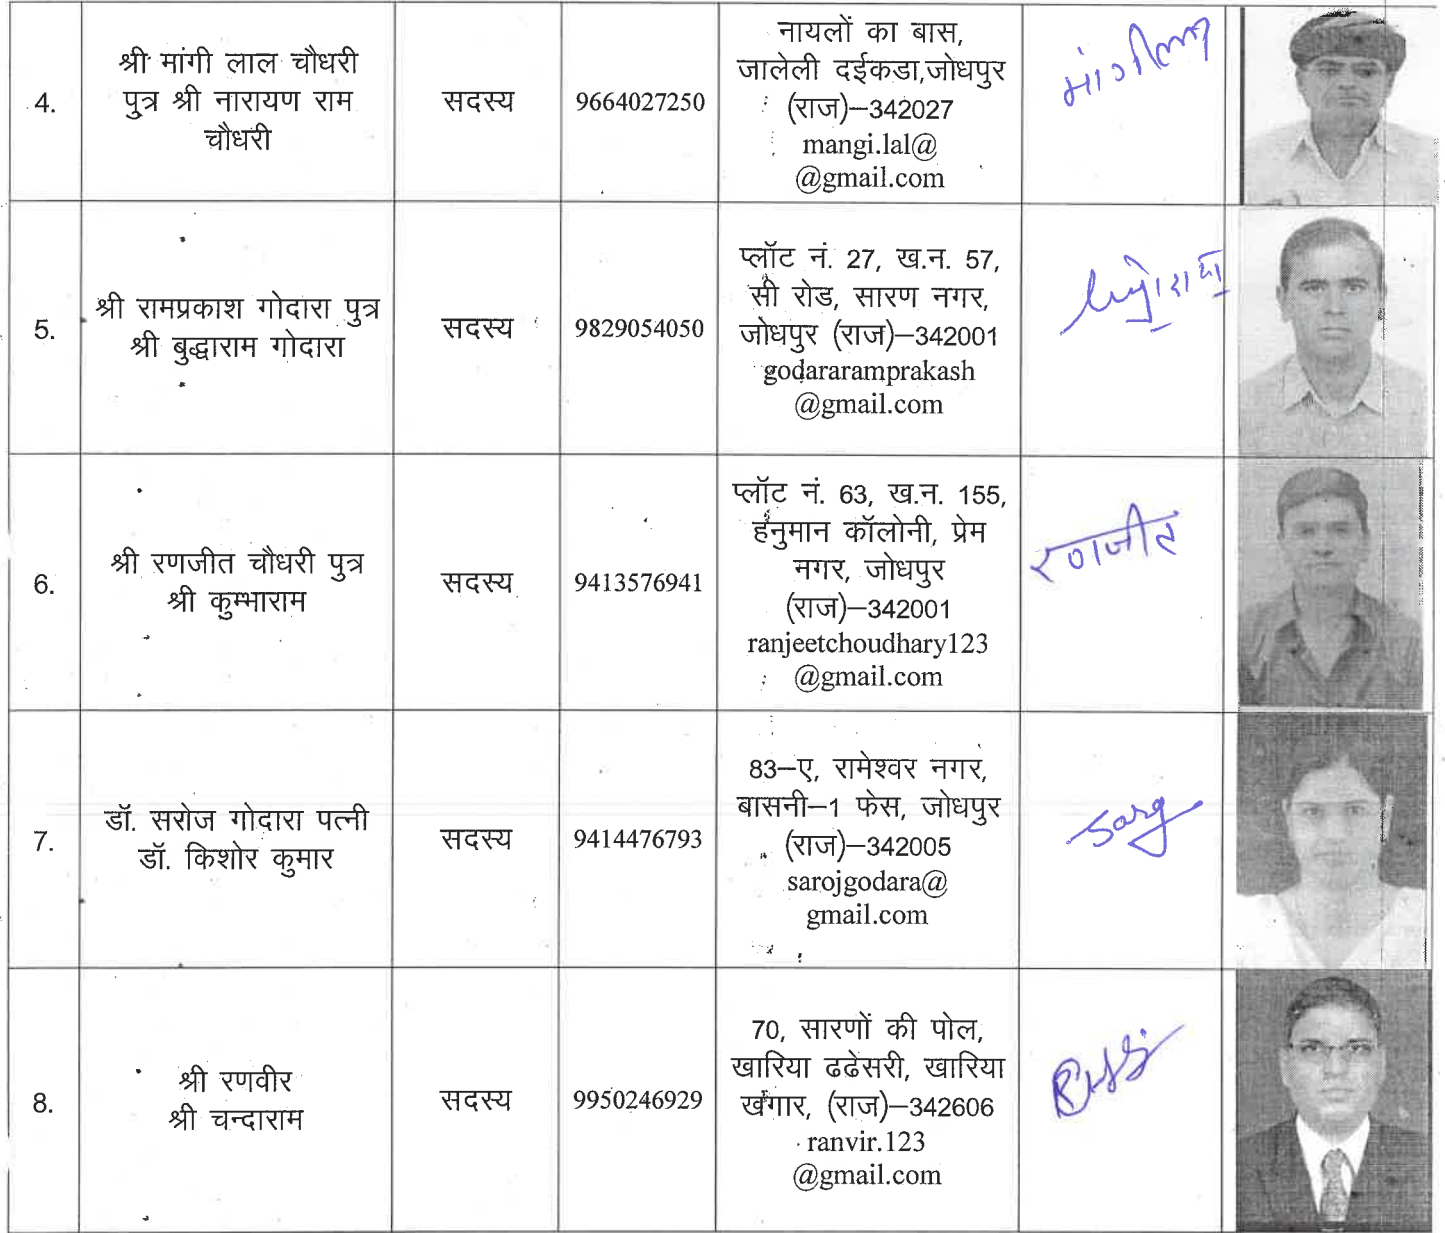 4.
श्री मांगी लाल चौधरी
पुत्र श्री नारायण राम
चौधरी
सदस्य
9664027250
नायलों का बास,
जालेली दईकडा,जोधपुर
(राज)–342027
mangi.lal@
@gmail.com
मांगीलाल
5.
श्री रामप्रकाश गोदारा पुत्र
श्री बुद्धाराम गोदारा
सदस्य
9829054050
प्लॉट नं. 27, ख.न. 57,
सी रोड, सारण नगर,
जोधपुर (राज)–342001
godararamprakash
@gmail.com
6.
श्री रणजीत चौधरी पुत्र
श्री कुम्भाराम
सदस्य
9413576941
प्लॉट नं. 63, ख.न. 155,
हनुमान कॉलोनी, प्रेम
नगर, जोधपुर
(राज)–342001
ranjeetchoudhary123
@gmail.com
रणजीत
7.
डॉ. सरोज गोदारा पत्नी
डॉ. किशोर कुमार
सदस्य
9414476793
83–ए, रामेश्वर नगर,
बासनी–1 फेस, जोधपुर
(राज)–342005
sarojgodara@
gmail.com
8.
श्री रणवीर
श्री चन्दाराम
सदस्य
9950246929
70, सारणों की पोल,
खारिया ढढेसरी, खारिया
खंगार, (राज)–342606
ranvir.123
@gmail.com